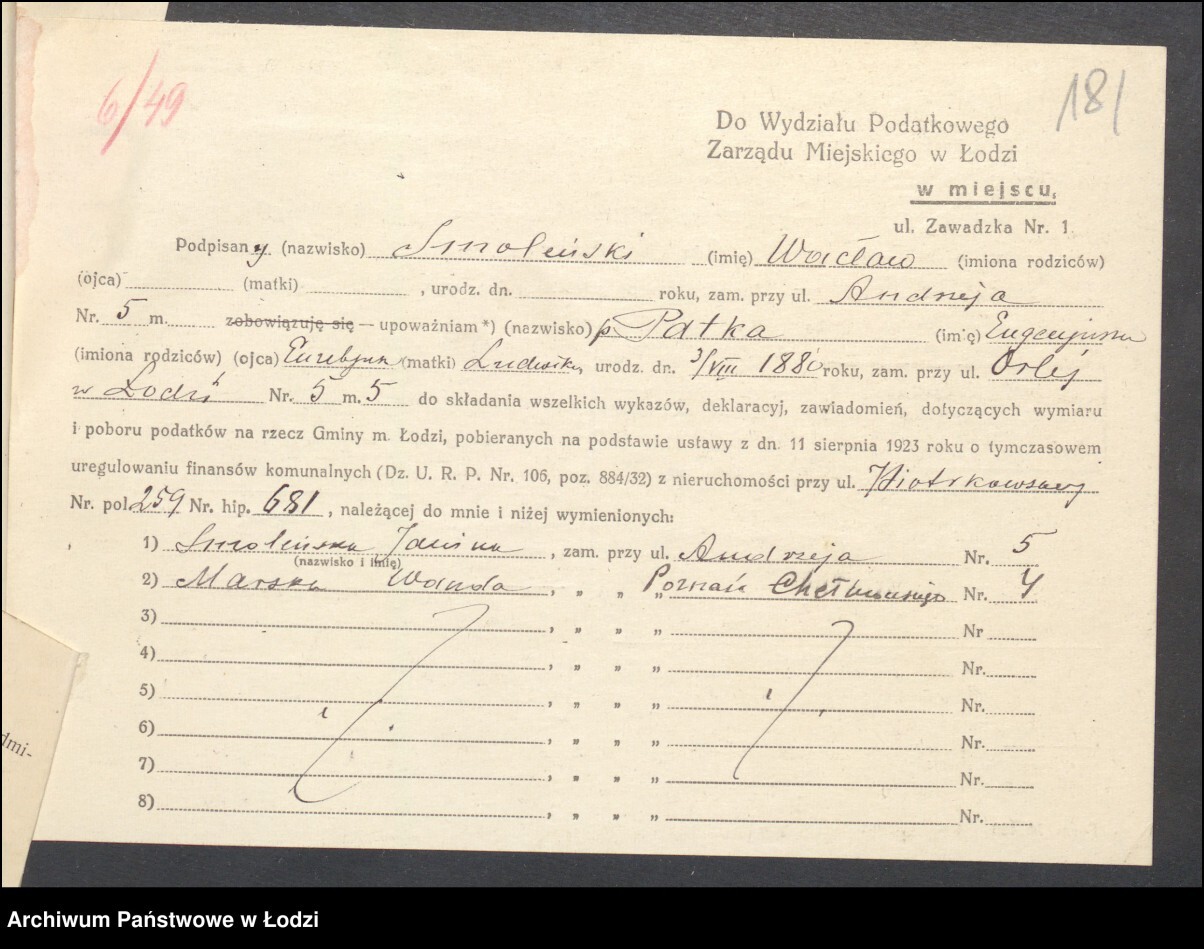 6/49
181
Do Wydziału Podatkowego
Zarządu Miejskiego w Łodzi
w miejscu,
ul. Zawadzka Nr. 1
Podpisany (nazwisko) Smoleński (imię) Wacław (imiona rodziców)
(ojca) (matki) , urodz. dn. roku, zam. przy ul. Andrzeja
Nr. 5 m. zobowiązuję się — upoważniam *) (nazwisko) p Patka (imię) Eugenjusza
(imiona rodziców) (ojca) (matki) Ludwika, urodz. dn. 3/VIII 1880 roku, zam. przy ul. Orlej
w Łodzi Nr. 5 m. 5 do składania wszelkich wykazów, deklaracyj, zawiadomień, dotyczących wymiaru
i poboru podatków na rzecz Gminy m. Łodzi, pobieranych na podstawie ustawy z dn. 11 sierpnia 1923 roku o tymczasowem
uregulowaniu finansów komunalnych (Dz. U. R. P. Nr. 106, poz. 884/32) z nieruchomości przy ul. Piotrkowskiej
Nr. pol. 259 Nr. hip. 681, należącej do mnie i niżej wymienionych:
1) Smoleńska Janina, zam. przy ul. Andrzeja Nr. 5
(nazwisko i imię)
2) Marska Wanda, „ „ „ Poznań Chełmońskiego Nr. 4
3) , „ „ „ Nr
4) , „ „ „ Nr.
5) , „ „ „ Nr.
6) , „ „ „ Nr.
7) , „ „ „ Nr.
8) , „ „ „ Nr.
dmi-
Archiwum Państwowe w Łodzi